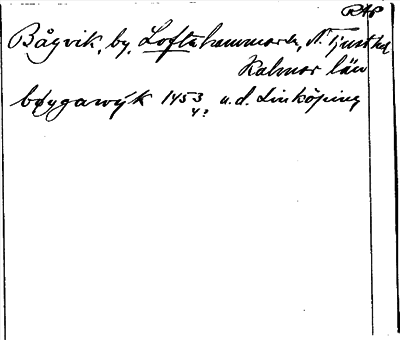 RAP
Bågvik, by, Loftahammars sn, N. Tjust hd
Kalmar län
böygawijk 1453 u.d. Linköping
4?